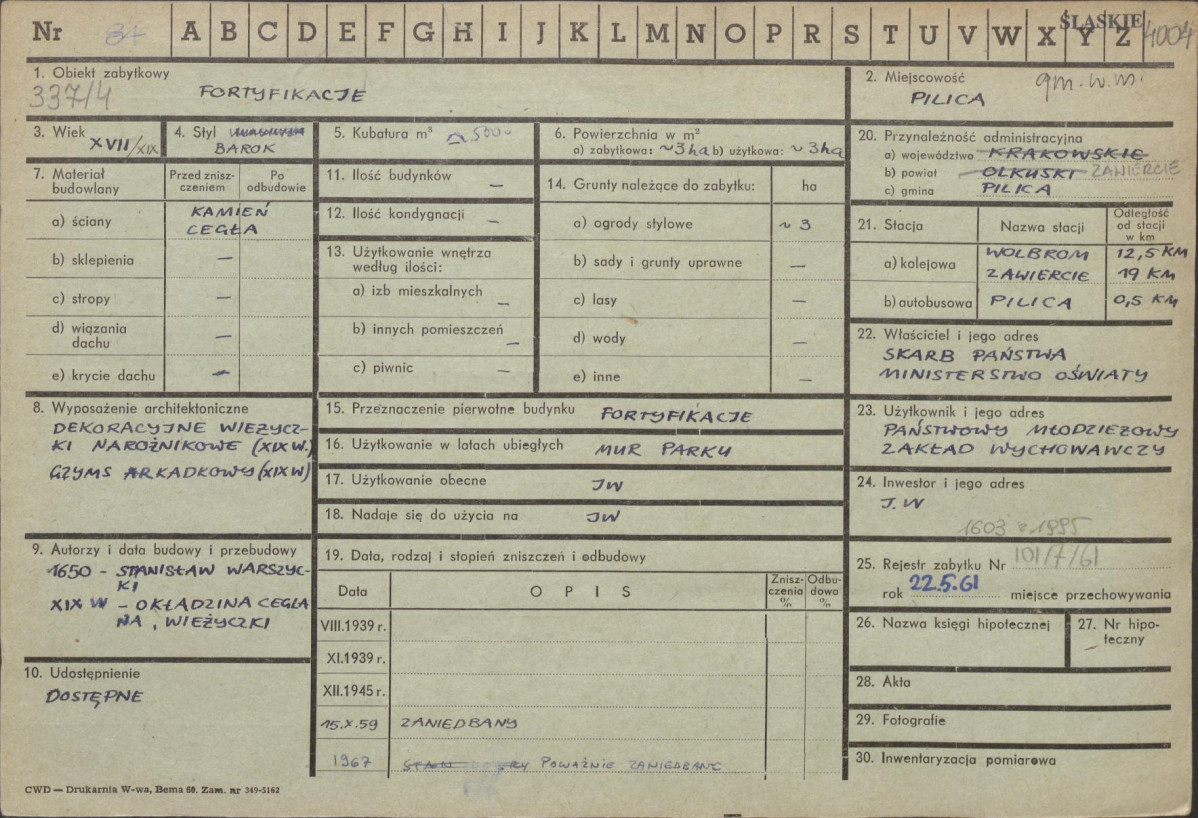 Nr 84 A B C D E F G H I J K L M N O P R S T U V W X Y Z ŚLĄSKIE 4004
1. Obiekt zabytkowy
337/4 FORTYFIKACJE
2. Miejscowość gm. w. m.
PILICA
3. Wiek
XVII/XIX
4. Styl
BAROK
5. Kubatura m³
6. Powierzchnia w m²
a) zabytkowa: ~3ha b) użytkowa: ~3ha
20. Przynależność administracyjna
a) województwo KRAKOWSKIE
b) powiat OLKUSKI ZAWIERCIE
c) gmina PILICA
7. Materiał budowlany
Przed zniszczeniem
Po odbudowie
a) ściany KAMIEŃ
CEGŁA
b) sklepienia —
c) stropy —
d) wiązania dachu —
e) krycie dachu —
11. Ilość budynków —
12. Ilość kondygnacji —
13. Użytkowanie wnętrza
według ilości:
a) izb mieszkalnych —
b) innych pomieszczeń —
c) piwnic —
14. Grunty należące do zabytku: ha
a) ogrody stylowe ~ 3
b) sady i grunty uprawne —
c) lasy —
d) wody —
e) inne —
21. Stacja
Nazwa stacji
Odległość
od stacji
w km
a) kolejowa WOLBROM 12,5 KM
ZAWIERCIE 19 KM
b) autobusowa PILICA 0,5 KM
22. Właściciel i jego adres
SKARB PAŃSTWA
MINISTERSTWO OŚWIATY
8. Wyposażenie architektoniczne
DEKORACYJNE WIEŻYCZ-
KI NAROŻNIKOWE (XIX W.)
GZYMS ARKADKOWY (XIX W)
15. Przeznaczenie pierwotne budynku FORTYFIKACJE
16. Użytkowanie w latach ubiegłych MUR PARKU
17. Użytkowanie obecne JW
18. Nadaje się do użycia na JW
23. Użytkownik i jego adres
PAŃSTWOWY MŁODZIEŻOWY
ZAKŁAD WYCHOWAWCZY
24. Inwestor i jego adres
J.W
1603 z 1995
9. Autorzy i data budowy i przebudowy
1650 - STANISŁAW WARSZYC-
KI
XIX W - OKŁADZINA CEGLA
NA, WIEŻYCZKI
10. Udostępnienie
DOSTĘPNE
19. Data, rodzaj i stopień zniszczeń i odbudowy
Data
O P I S
Znisz-
czenia
%
Odbu-
dowa
%
VIII.1939 r.
XI.1939 r.
XII.1945 r.
15.X.59 ZANIEDBANY
1967 STAN DOBRY POWAŻNIE ZANIEDBANE
25. Rejestr zabytku Nr 101/7/61
rok 22.5.61 miejsce przechowywania
26. Nazwa księgi hipotecznej
27. Nr hipo-
teczny
28. Akta
29. Fotografie
30. Inwentaryzacja pomiarowa
CWD — Drukarnia W-wa, Bema 60. Zam. nr 349-5162